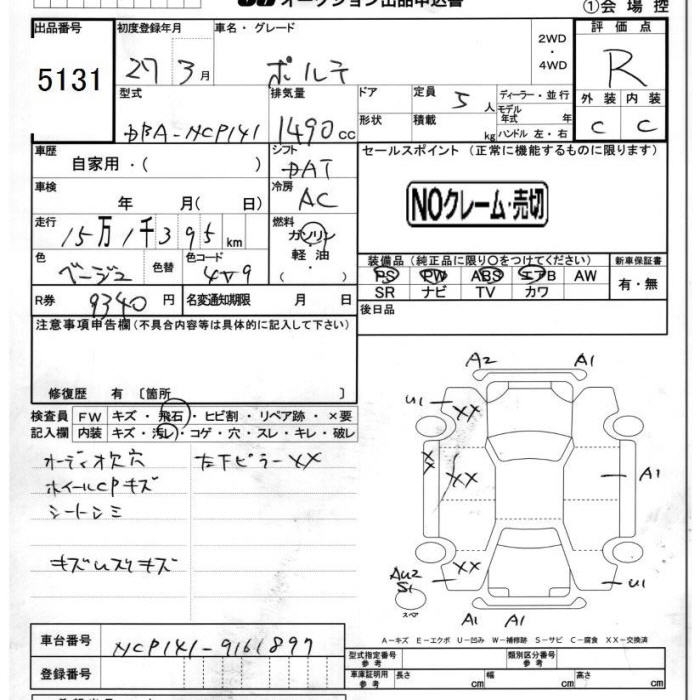 オークション出品申込書
①会場控
出品番号
5131
初度登録年月
27 3月
車名・グレード
ポルテ
2WD
・
4WD
評価点
R
外装 内装
C C
型式
DBA-NCP141
排気量
1490cc
ドア
形状
定員 5人
積載 kg
ディーラー・並行
モデル年式 年
ハンドル 左・右
車歴
自家用・( )
シフト
DAT
セールスポイント (正常に機能するものに限ります)
NOクレーム・売切
車検
年 月( 日)
冷房
AC
走行
15万1千395km
燃料
ガソリン
・
軽油
( )
色
ベージュ
色替
色コード
4V9
R券 9340円
名変通知期限 月 日
装備品(純正品に限り○をつけてください)
PS PW ABS エアB AW
SR ナビ TV カワ
新車保証書
有・無
後日品
注意事項申告欄(不具合内容等は具体的に記入して下さい)
修復歴 有 〔箇所 〕
検査員 FW キズ・飛石・ヒビ割・リペア跡・×要
記入欄 内装 キズ・汚レ・コゲ・穴・スレ・キレ・破レ
オーディオ欠穴 左下ピラーXX
ホイールCPキズ
シートシミ
キズUスリキズ
A2 A1
U1 XX
XX XX A1
XX
AU2
S1
スペ
U1
A1 A1
A-キズ E-エクボ U-凹み W-補修跡 S-サビ C-腐食 XX-交換済
車台番号 NCP141-9161897
登録番号
型式指定番号 参考
類別区分番号 参考
車庫証明用 参考 長さ cm 幅 cm 高さ cm